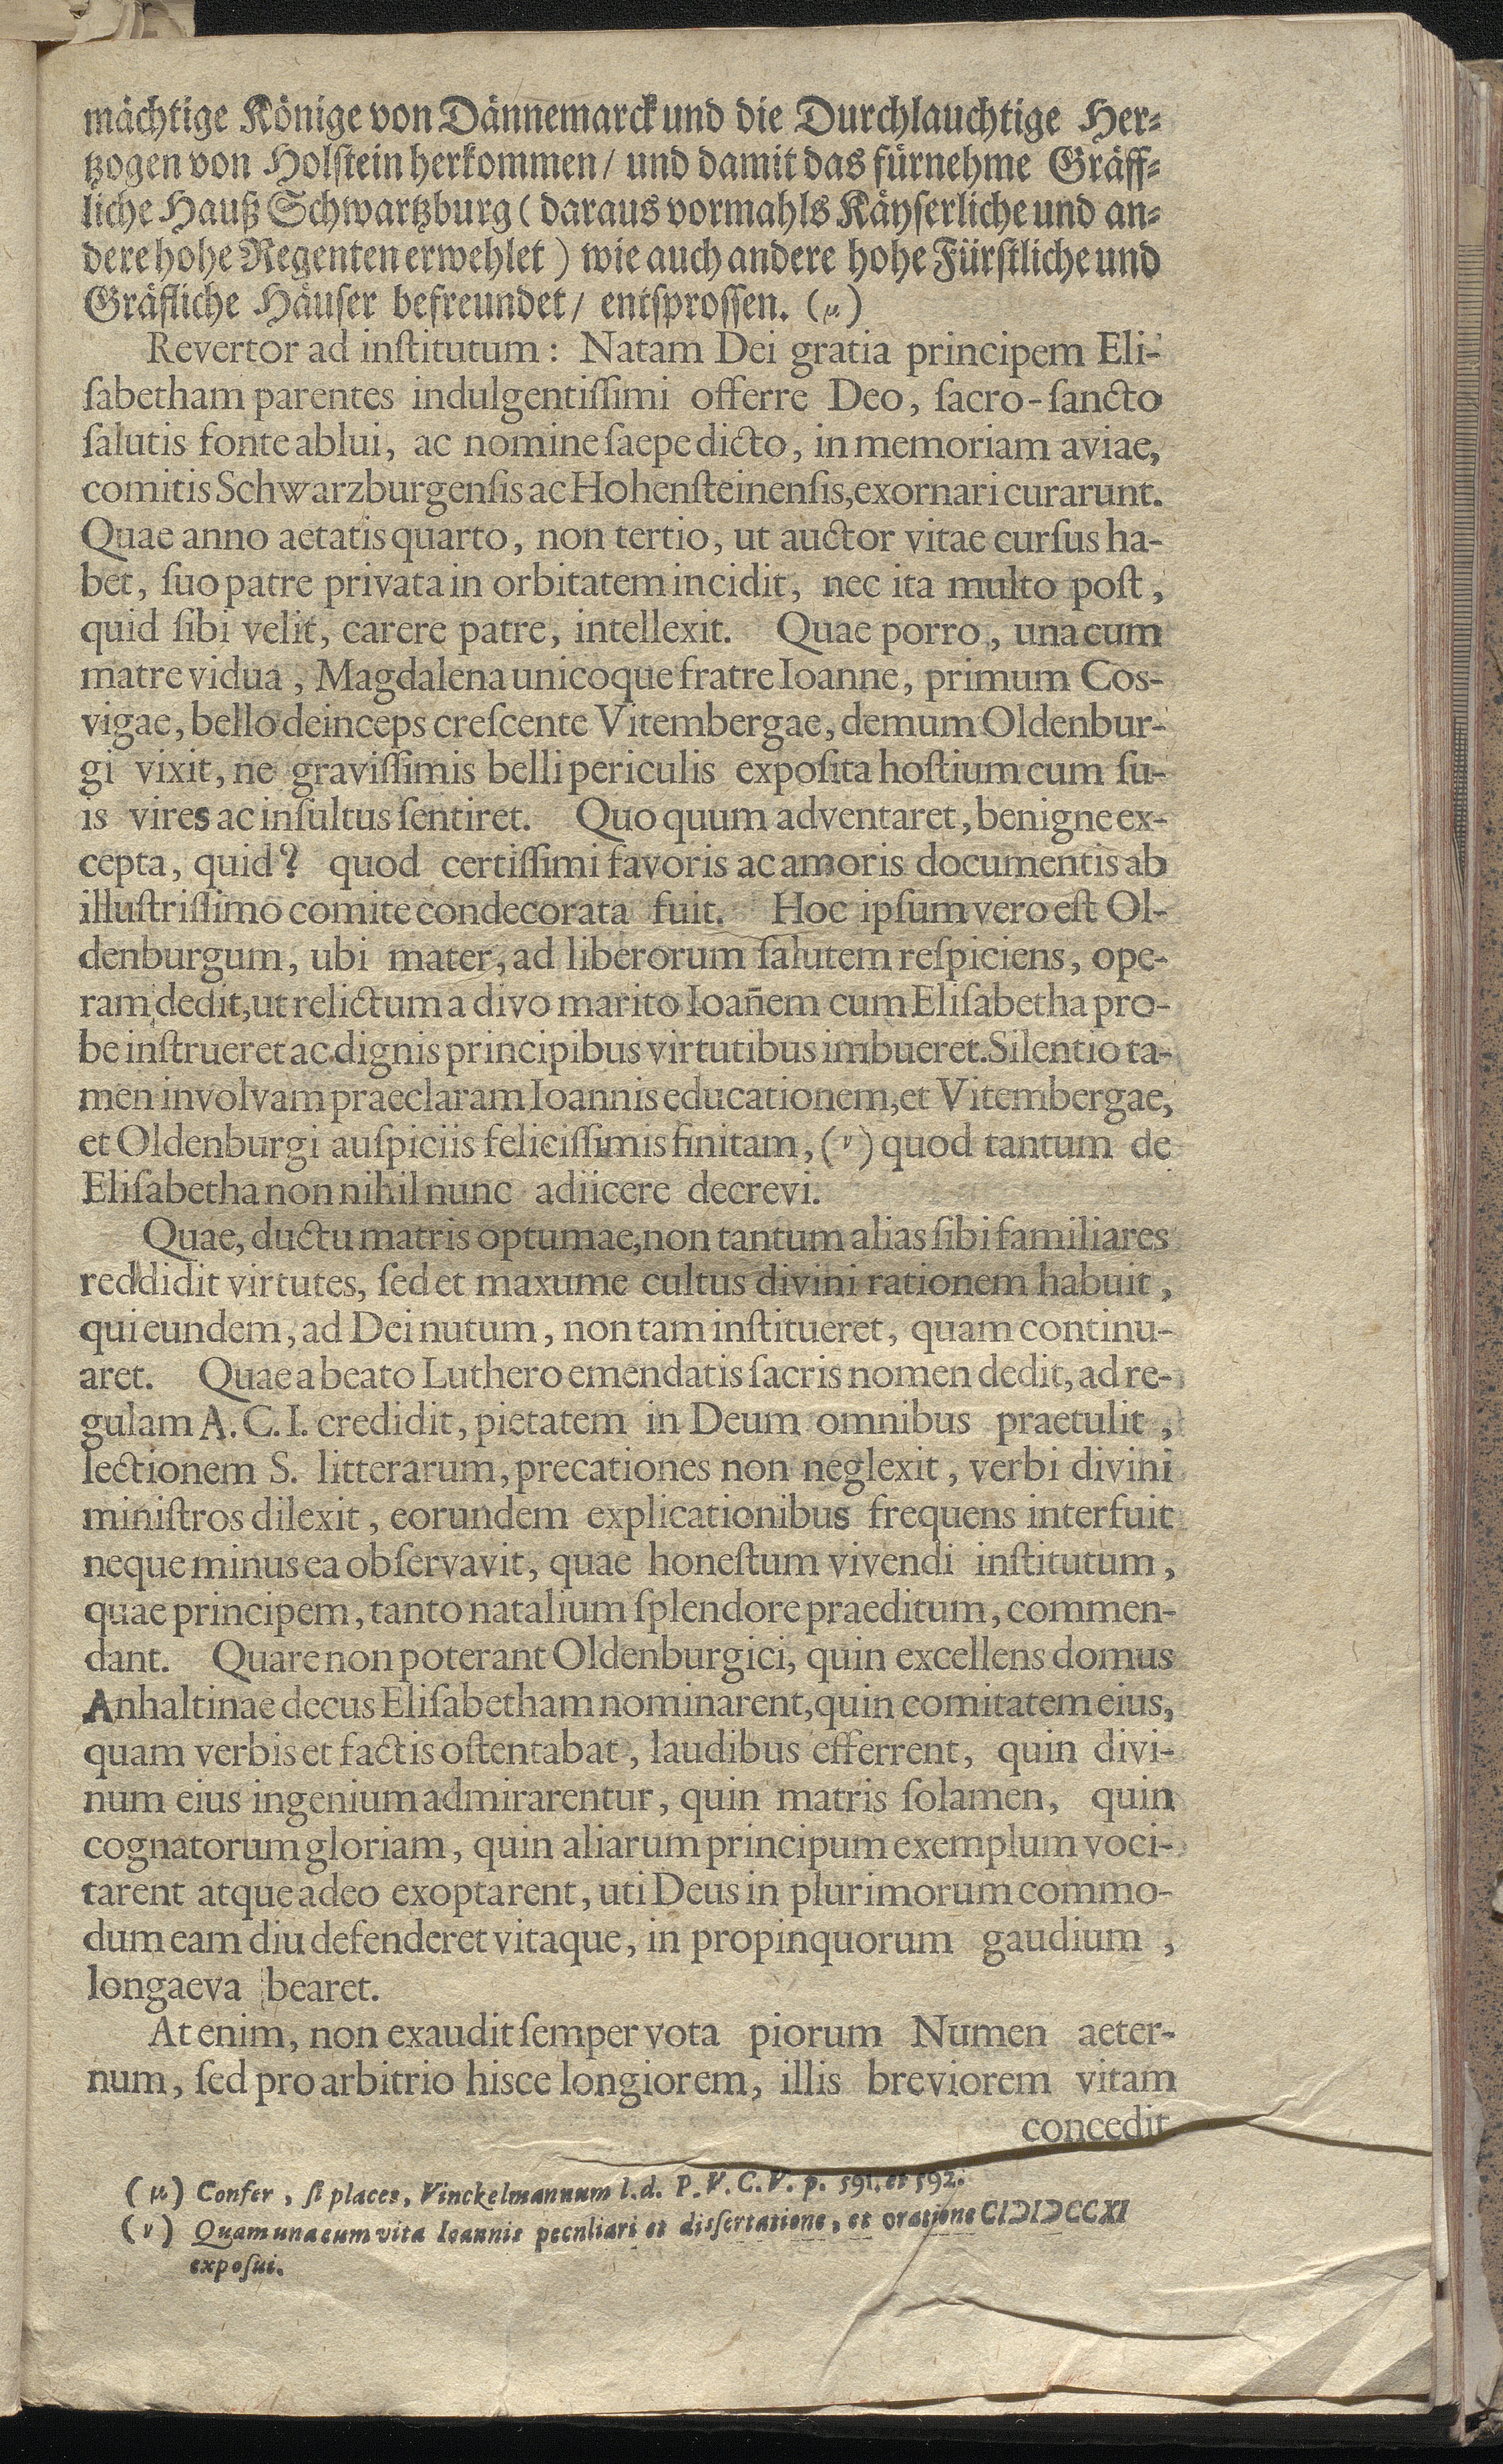 mächtige Könige von Dännemarck und die Durchlauchtige Her⸗
tzogen von Holſtein herkommen / und damit das fürnehme Gräff⸗
liche Hauß Schwartzburg ( daraus vormahls Käyſerliche und an⸗
dere hohe Regenten erwehlet ) wie auch andere hohe Fürſtliche und
Gräfliche Häuſer befreundet / entſproſſen. (μ)
Revertor ad inſtitutum : Natam Dei gratia principem Eli-
ſabetham parentes indulgentiſſimi offerre Deo, ſacro-ſancto
ſalutis fonte ablui, ac nomine ſaepe dicto, in memoriam aviae,
comitis Schwarzburgenſis ac Hohenſteinenſis, exornari curarunt.
Quae anno aetatis quarto, non tertio, ut auctor vitae curſus ha-
bet, ſuo patre privata in orbitatem incidit, nec ita multo poſt,
quid ſibi velit, carere patre, intellexit. Quae porro, una cum
matre vidua, Magdalena unicoque fratre Ioanne, primum Cos-
vigae, bello deinceps creſcente Vitembergae, demum Oldenbur-
gi vixit, ne graviſſimis belli periculis expoſita hoſtium cum ſu-
is vires ac inſultus ſentiret. Quo quum adventaret, benigne ex-
cepta, quid? quod certiſſimi favoris ac amoris documentis ab
illuſtriſſimo comite condecorata fuit. Hoc ipſum vero eſt Ol-
denburgum, ubi mater, ad liberorum ſalutem reſpiciens, ope-
ram dedit, ut relictum a divo marito Ioañem cum Eliſabetha pro-
be inſtrueret ac dignis principibus virtutibus imbueret. Silentio ta-
men involvam praeclaram Ioannis educationem, et Vitembergae,
et Oldenburgi auſpiciis feliciſſimis finitam, (ν) quod tantum de
Eliſabetha non nihil nunc adiicere decrevi.
Quae, ductu matris optumae, non tantum alias ſibi familiares
reddidit virtutes, ſed et maxume cultus divini rationem habuit,
qui eundem, ad Dei nutum, non tam inſtitueret, quam continu-
aret. Quae a beato Luthero emendatis ſacris nomen dedit, ad re-
gulam A. C. I. credidit, pietatem in Deum omnibus praetulit,
lectionem S. litterarum, precationes non neglexit, verbi divini
miniſtros dilexit, eorundem explicationibus frequens interfuit
neque minus ea obſervavit, quae honeſtum vivendi inſtitutum,
quae principem, tanto natalium ſplendore praeditum, commen-
dant. Quare non poterant Oldenburgici, quin excellens domus
Anhaltinae decus Eliſabetham nominarent, quin comitatem eius,
quam verbis et factis oſtentabat, laudibus efferrent, quin divi-
num eius ingenium admirarentur, quin matris ſolamen, quin
cognatorum gloriam, quin aliarum principum exemplum voci-
tarent atque adeo exoptarent, uti Deus in plurimorum commo-
dum eam diu defenderet vitaque, in propinquorum gaudium,
longaeva bearet.
At enim, non exaudit ſemper vota piorum Numen aeter-
num, ſed pro arbitrio hisce longiorem, illis breviorem vitam
concedit
(μ) Confer, ſi placet, Vinckelmannum l. d. P. V. C. V. p. 591. et 592.
(ν) Quam una cum vita Ioannis peculiari et diſſertatione, et oratione CIƆIƆCCXI
expoſui.